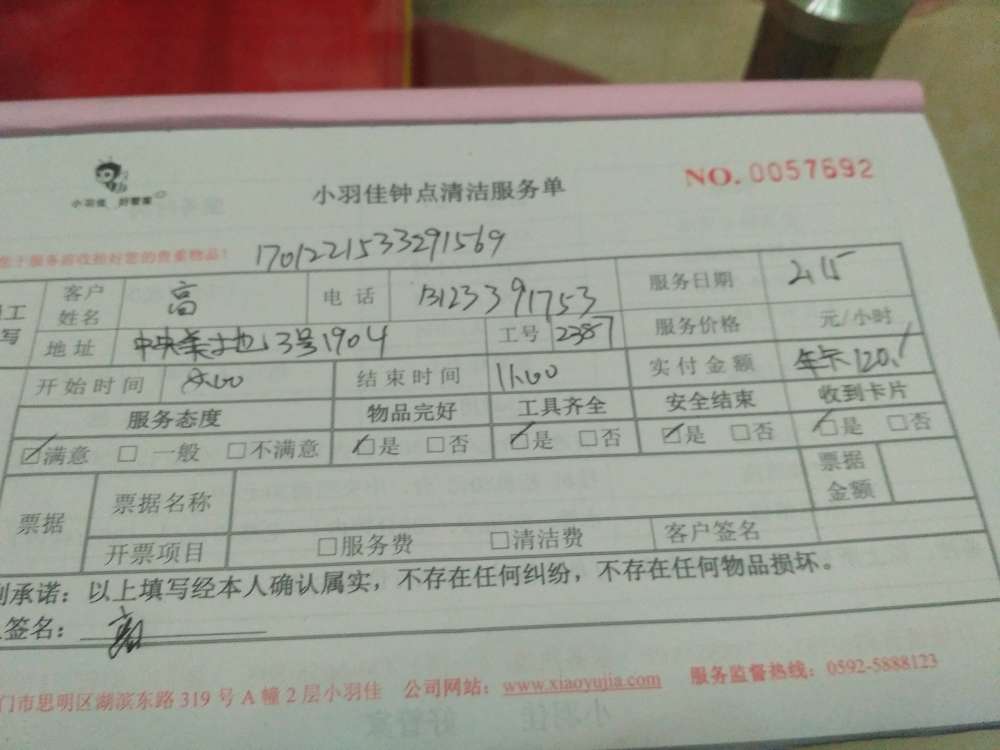 小羽佳 好管家
小羽佳钟点清洁服务单
NO. 0057692
您于服务前收拾好您的贵重物品!
1701221533291569
客户姓名 高 电话 13123391753 服务日期 2.15
地址 3号1904 工号 2387 服务价格 元/小时
开始时间 8:00 结束时间 11:00 实付金额 年卡120.
服务态度 物品完好 工具齐全 安全结束 收到卡片
☑满意 □一般 □不满意 ☑是 □否 ☑是 □否 ☑是 □否 ☑是 □否
票据 票据名称 票据金额
开票项目 □服务费 □清洁费 客户签名
承诺:以上填写经本人确认属实,不存在任何纠纷,不存在任何物品损坏。
签名:
门市思明区湖滨东路319号A幢2层小羽佳 公司网站:www.xiaoyujia.com 服务监督热线:0592-5888123